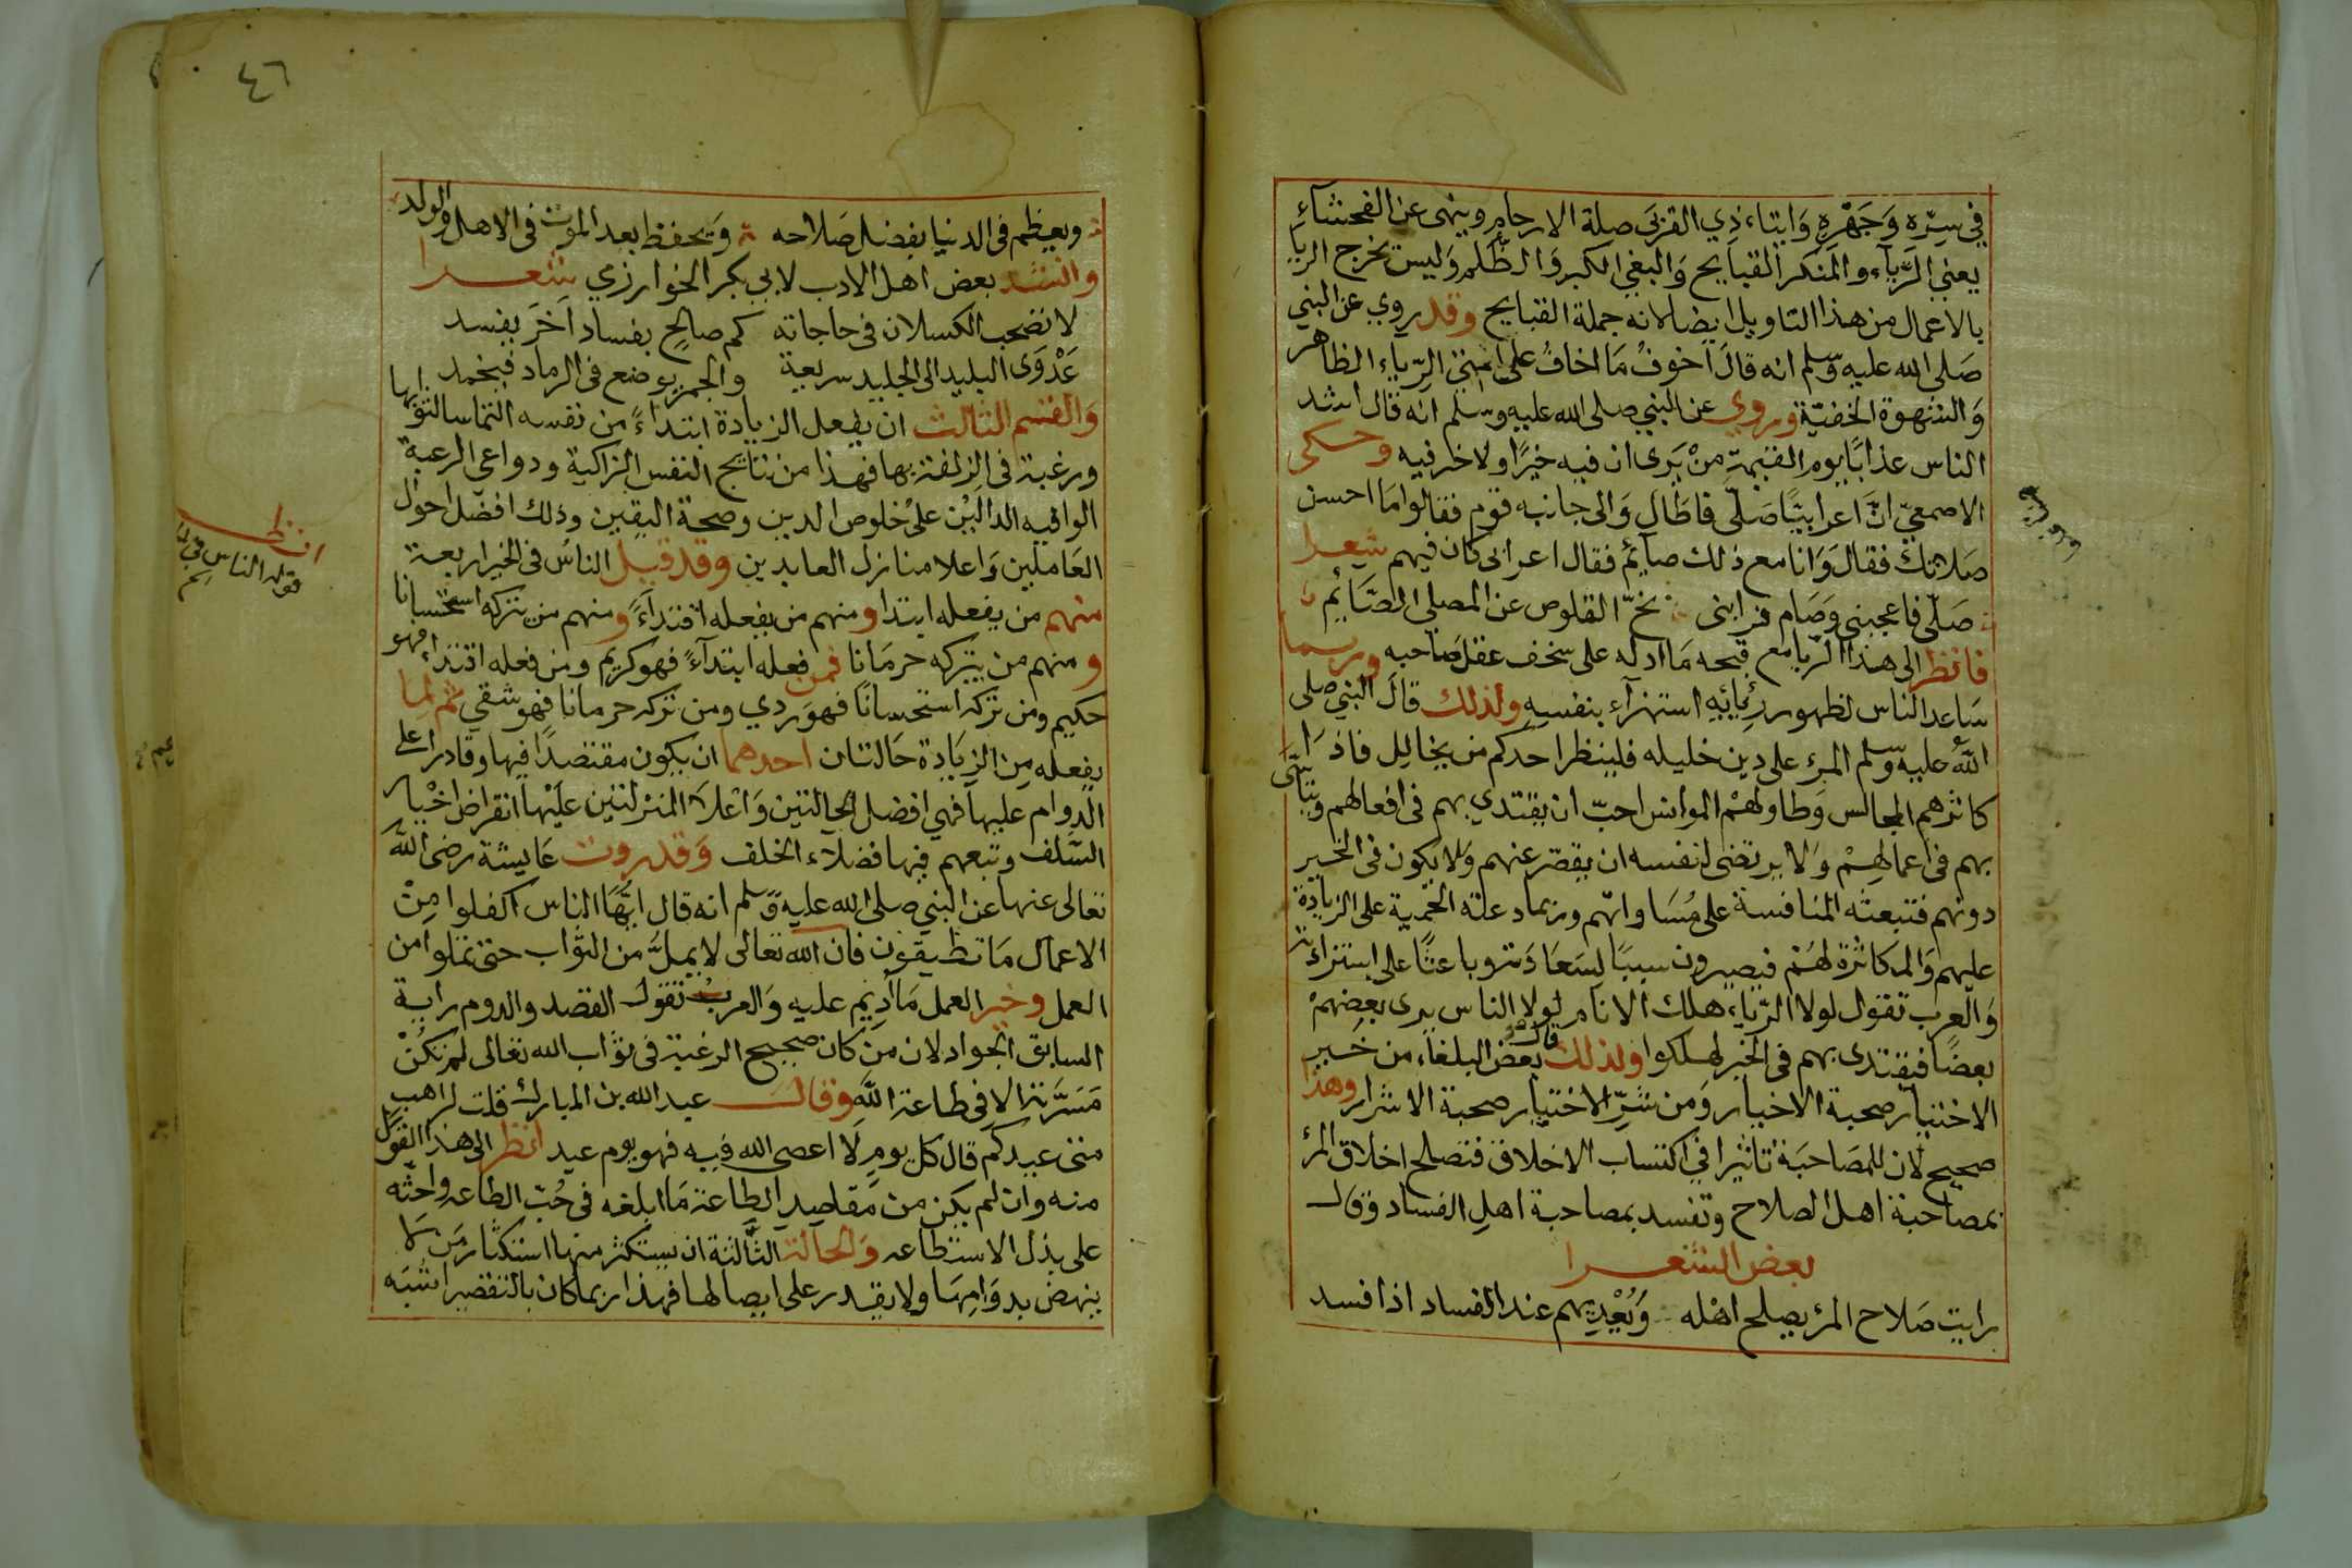 في سِرّه وَجَهْرِه وَايتاء ذِي القربَى صِلة الارحام وينهى عن الفحشاءِ
يعني الرّياء والمنكر القبايح وَالبغي الكبر وَالظّلم وَليس يخرج الريا
بالاعمال من هذا التاويل ايضا لانه جملة القبايح وقد روي عن النبي
صَلى الله عليه وسلم انه قالَ اخوفُ مَا اخافُ على امتى الرّياء الظاهر
وَالشهوة الخفيّة وروي عن النبي صلى الله عليه وسلم انه قال اشد
الناس عذابًا يوم القيمة مَنْ يَرى ان فيه خيرًا ولا خير فيه وحكى
الاصمعيّ انّ اعرابيًا صَلّى فاطَال وَالى جانبه قوم فقالوا مَا احسن
صَلاتك فقالَ وَانا مع ذلك صايمٌ فقال اعرابي كان فيهم شعرا
صَلّى فاعجبني وَصَام فرابنى نخّ القلوص عن المصلي الصّائِم
فانظر الى هذا الرّيا مع قبحه مَا ادله على سخف عقل صَاحبه وربما
سَاعد الناس لظهور رئيائِهِ استهزآء بنفسِهِ ولذلك قالَ النبي صلى
اللهُ عليه وسلم المرءِ على دين خليله فلينظر احدكم من يخالِل فاذا
كاثرهم المجالس وَطاولهُم الموانس احبّ ان يقتدي بهم في افعالهم ويتاسَّى
بهم في اعمالهِمْ وَلا يرتضى لنفسه ان يقصّر عنهم وَلا يكون في الخير
دونهم فتبعثه المنافسة على مُسَاواتهم وربماد علته الحَميّة على الزيادة
عليهم وَالمكاثرة لهُم فيصيرون سببًا لِسَعَادَته وباعثًا على استزادته
وَالعرب تقول لولا الرّياء هلك الانام لولا الناس يرى بعضِهمْ
بعضًا فيقتدى بهم في الخير لهلكوا ولذلك قال بعض البلغاء من خَير
الاختيار صحبة الاخيار وَمن شَرِّ الاختيار صحبة الاشرار وهذا
صحيح لان للمصَاحبَة تاثيرا في اكتساب الاخلاق فتصلح اخلاق المرْء
بمصاحبة اهل الصلاح وتفسد بمصاحبة اهلِ الفساد وقال
بعض الشعرا
رايت صَلاح المرْء يصلح اهْله وَيُعْدِيهم عند الفساد اذا فسد
وروي فيه
٤٦
ويعظم في الدنيا بفضل صَلاحه وَيحفظ بعد الموت في الاهل والولد
وانشد بعض اهل الادب لابي بكر الخوارزي شعرا
لا تصحب الكسلان في حاجاته كم صالحٍ بفساد آخرَ يفسد
عَدْوَى البليد الى الجليد سريعة والجمر يوضع في الرماد فيخمد
وَالقسم الثالث ان يفعل الزيادة ابتداءً من نفسه التماسا لثوابها
ورغبة في الزلفة بها فهذا من نتايج النفس الزاكية ودواعى الرغبة
الوافيه الدالّين على خلوص الدين وصحة اليقين وذلك افضل احوال
العَاملين وَاعلا منازل العابدين وقد قيل الناسُ في الخير اربعة
منهم من يفعله ابتدا ومنهم من يفعله اقتداءً ومنهم من يتركه استحسانا
ومنهم من يتركه حرمَانا فمن فعله ابتدآءً فهو كريم ومن فعله اقتداء فهو
حكيم ومن تركه استحسانًا فهوَ ردي ومن تركه حرمانا فهو شقي ثم لِما
يفعله مِن الزيَادة حَالتان احدهما ان يكون مقتصدًا فيها وقادرا على
الدوام عليها فهي افضل الحالتين وَاعْلا المنزلتين علَيْها انقراض اخْيار
السَّلف وتبعهم فيها فضلآء الخلف وَقد روت عَايشة رضى الله
تعالى عنها عن النبي صلى الله عليه وسلم انه قال ايّهَا الناس اكفلوا مِنْ
الاعمال مَا تطيقون فان الله تعالى لا يملَّ من الثواب حتى تملوا من
العمل وخير العمل مَا أدِيم عليه وَالعربُ تقول القصد والدوم راية
السابق الجواد لان مَن كان صحيح الرغبة في ثواب الله تعالى لم تكُنْ
مَسَرَّته الا في طاعة الله وقال عبد الله بن المبارك قلت لراهب
متى عيدكم قال كل يومٍ لَا اعصى الله فيه فهو يوم عيد انظر الى هذا القول
منه وان لم يكن من مَقاصِدِ الطاعة مَا ابلغه في حُبّ الطاعه واحثّه
على بذل الاستطاعه وَالحالة الثالثة ان يستكثر منها استكثار مَن لا
ينهض بدوَامِهَا ولا يقدر على ايصالها فهذا ربما كان بالتقصير اشبَه
انظر
قوله الناس في